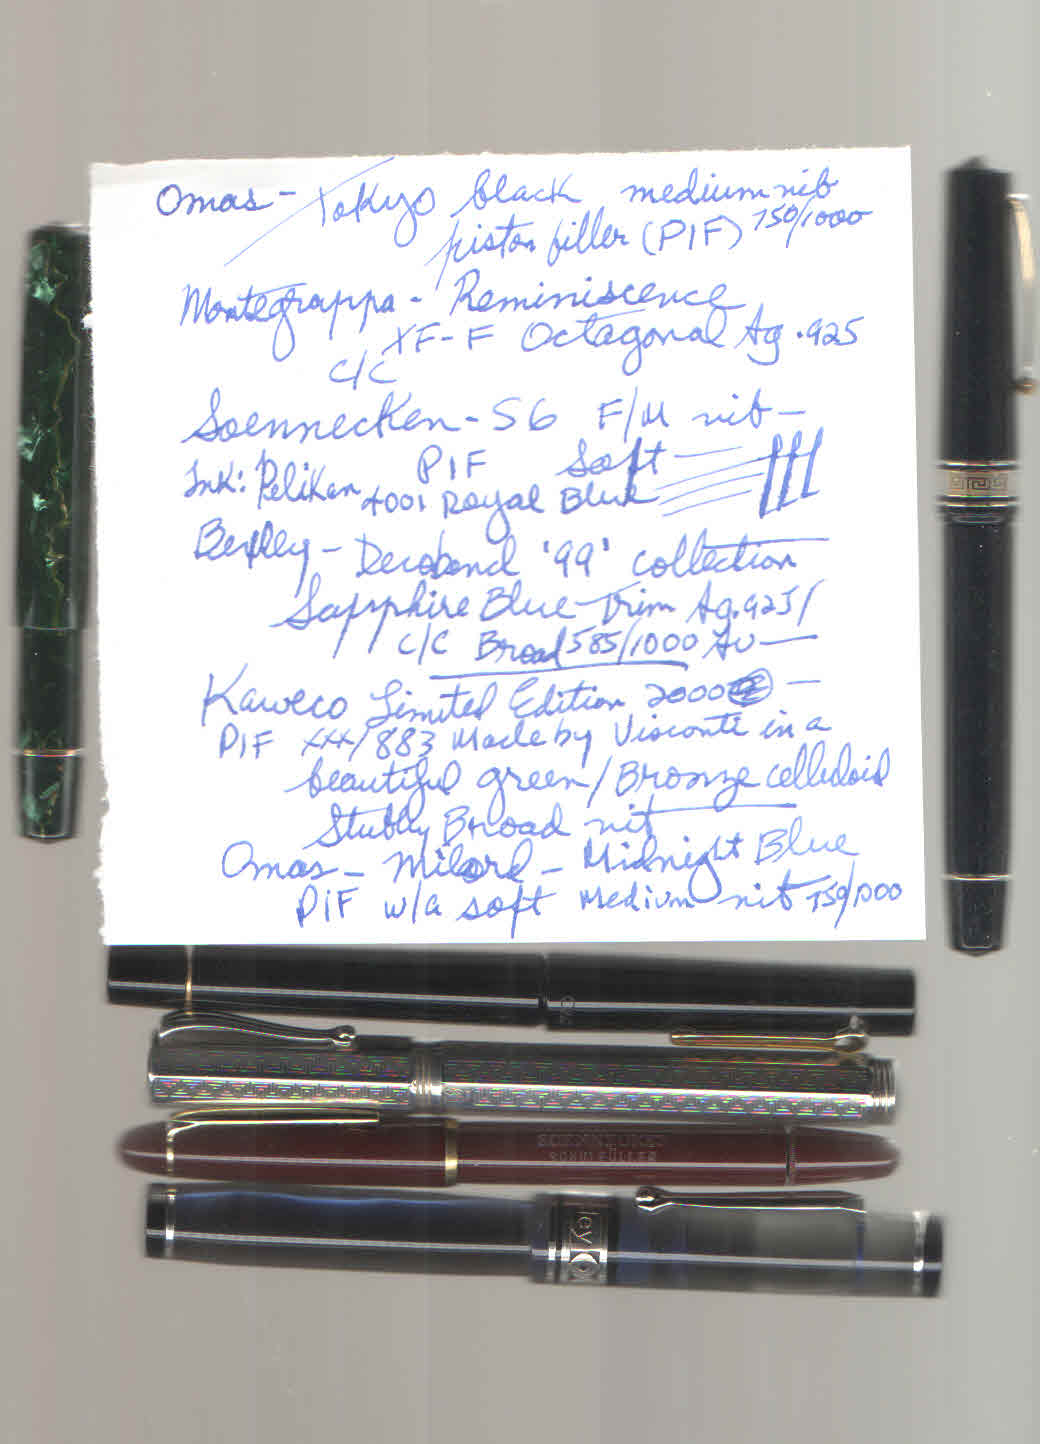 Omas - Tokyo black medium nib
piston filler (PIF) 750/1000
Montegrappa - Reminiscence
XF-F Octagonal Ag .925
c/c
Soennecken - S6 F/M nib -
PIF Soft -
Ink: Pelikan 4001 Royal Blue
Bexley - Decoband '99' collection
Sapphire Blue - Trim Ag.925/
c/c Broad 585/1000 Au -
Kaweco Limited Edition 2000 -
PIF xxx/883 Made by Visconti in a
beautiful green/Bronze celluloid
Stubby Broad nib
Omas - Milord - Midnight Blue
PIF w/a soft medium nib 750/1000
SOENNECKEN
SCHULFÜLLER
ley